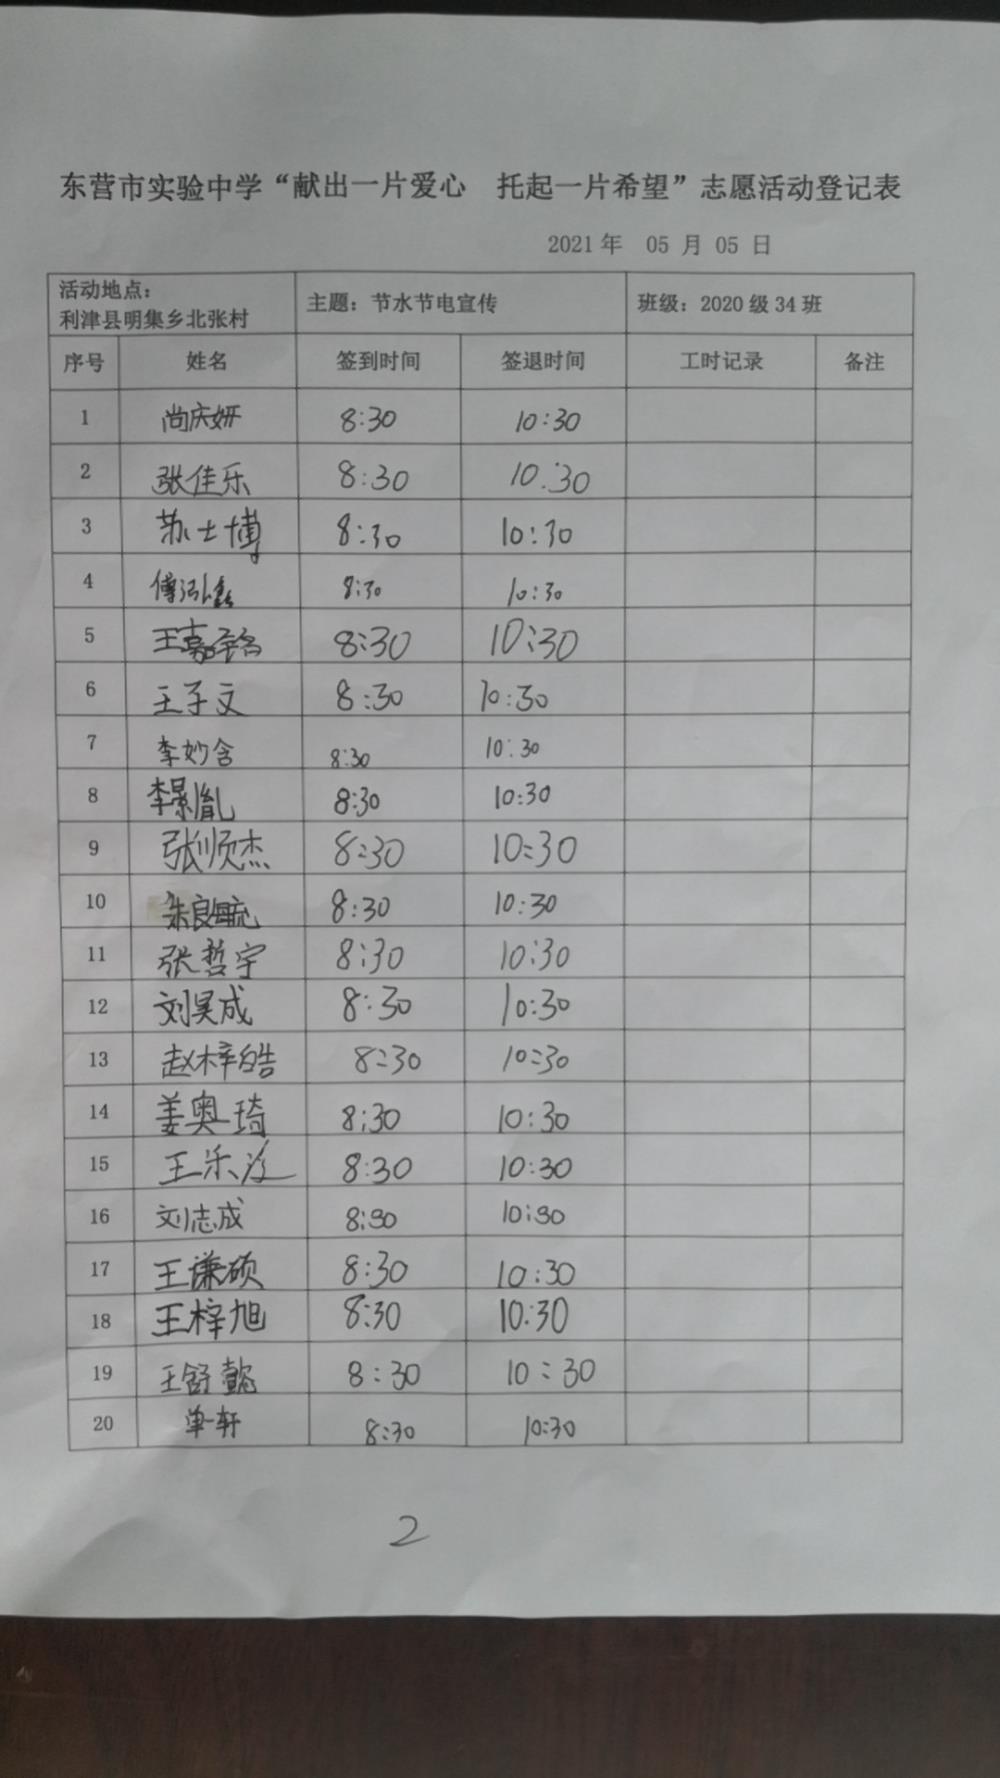 东营市实验中学“献出一片爱心 托起一片希望”志愿活动登记表
2021 年 05 月 05 日
活动地点：
利津县明集乡北张村 主题：节水节电宣传 班级：2020 级 34 班
序号 姓名 签到时间 签退时间 工时记录 备注
1 尚庆妍 8:30 10:30
2 张佳乐 8:30 10:30
3 苏士博 8:30 10:30
4 傅泓鑫 8:30 10:30
5 王嘉铭 8:30 10:30
6 王子文 8:30 10:30
7 李妙含 8:30 10:30
8 李景胤 8:30 10:30
9 张顺杰 8:30 10:30
10 朱良毓 8:30 10:30
11 张哲宇 8:30 10:30
12 刘昊成 8:30 10:30
13 赵梓皓 8:30 10:30
14 姜奥琦 8:30 10:30
15 8:30 10:30
16 刘志成 8:30 10:30
17 王谦硕 8:30 10:30
18 王梓旭 8:30 10:30
19 王舒懿 8:30 10:30
20 单轩 8:30 10:30
2